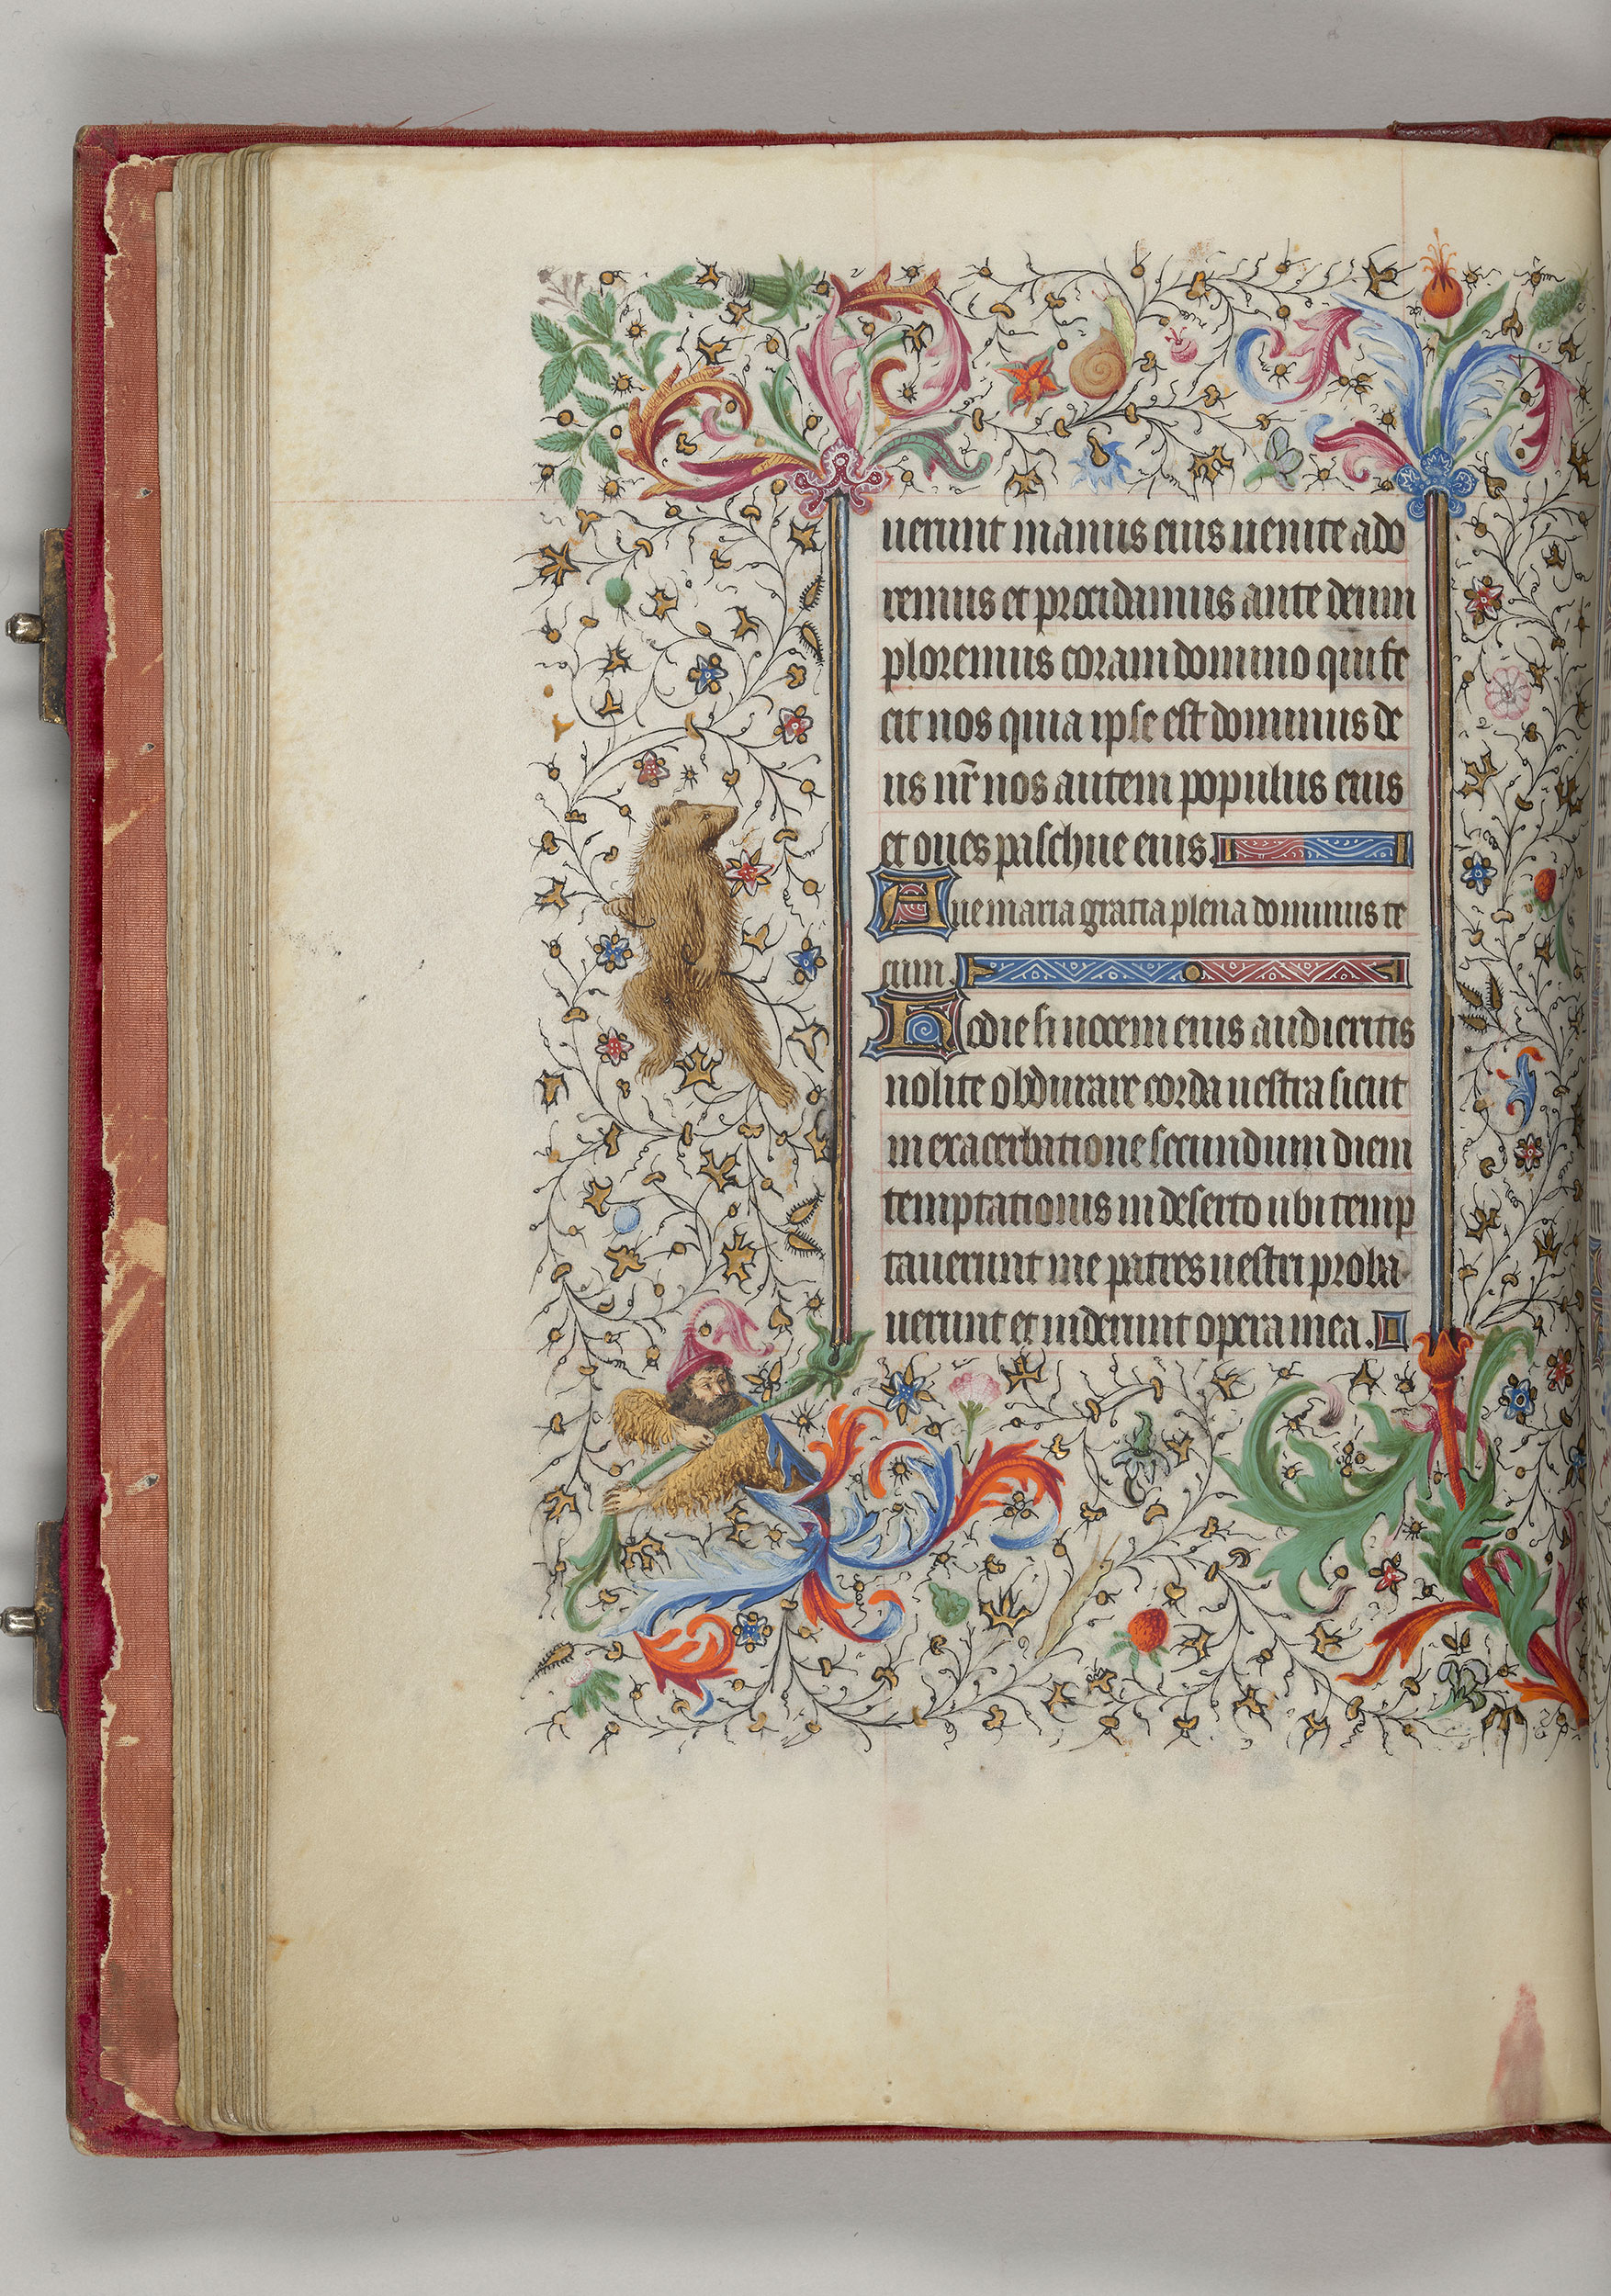 uerunt manus eius uenite ado
remus et procidamus ante deum
ploremus coram domino qui fe
cit nos quia ipse est dominus de
us nr̄ nos autem populus eius
et oues paschue eius.
Aue maria gratia plena dominus te
cum.
Hodie si uocem eius audieritis
nolite obdurare corda uestra sicut
in exacerbatione secundum diem
temptationis in deserto ubi temp
tauerunt me patres uestri proba
uerunt et uiderunt opera mea.